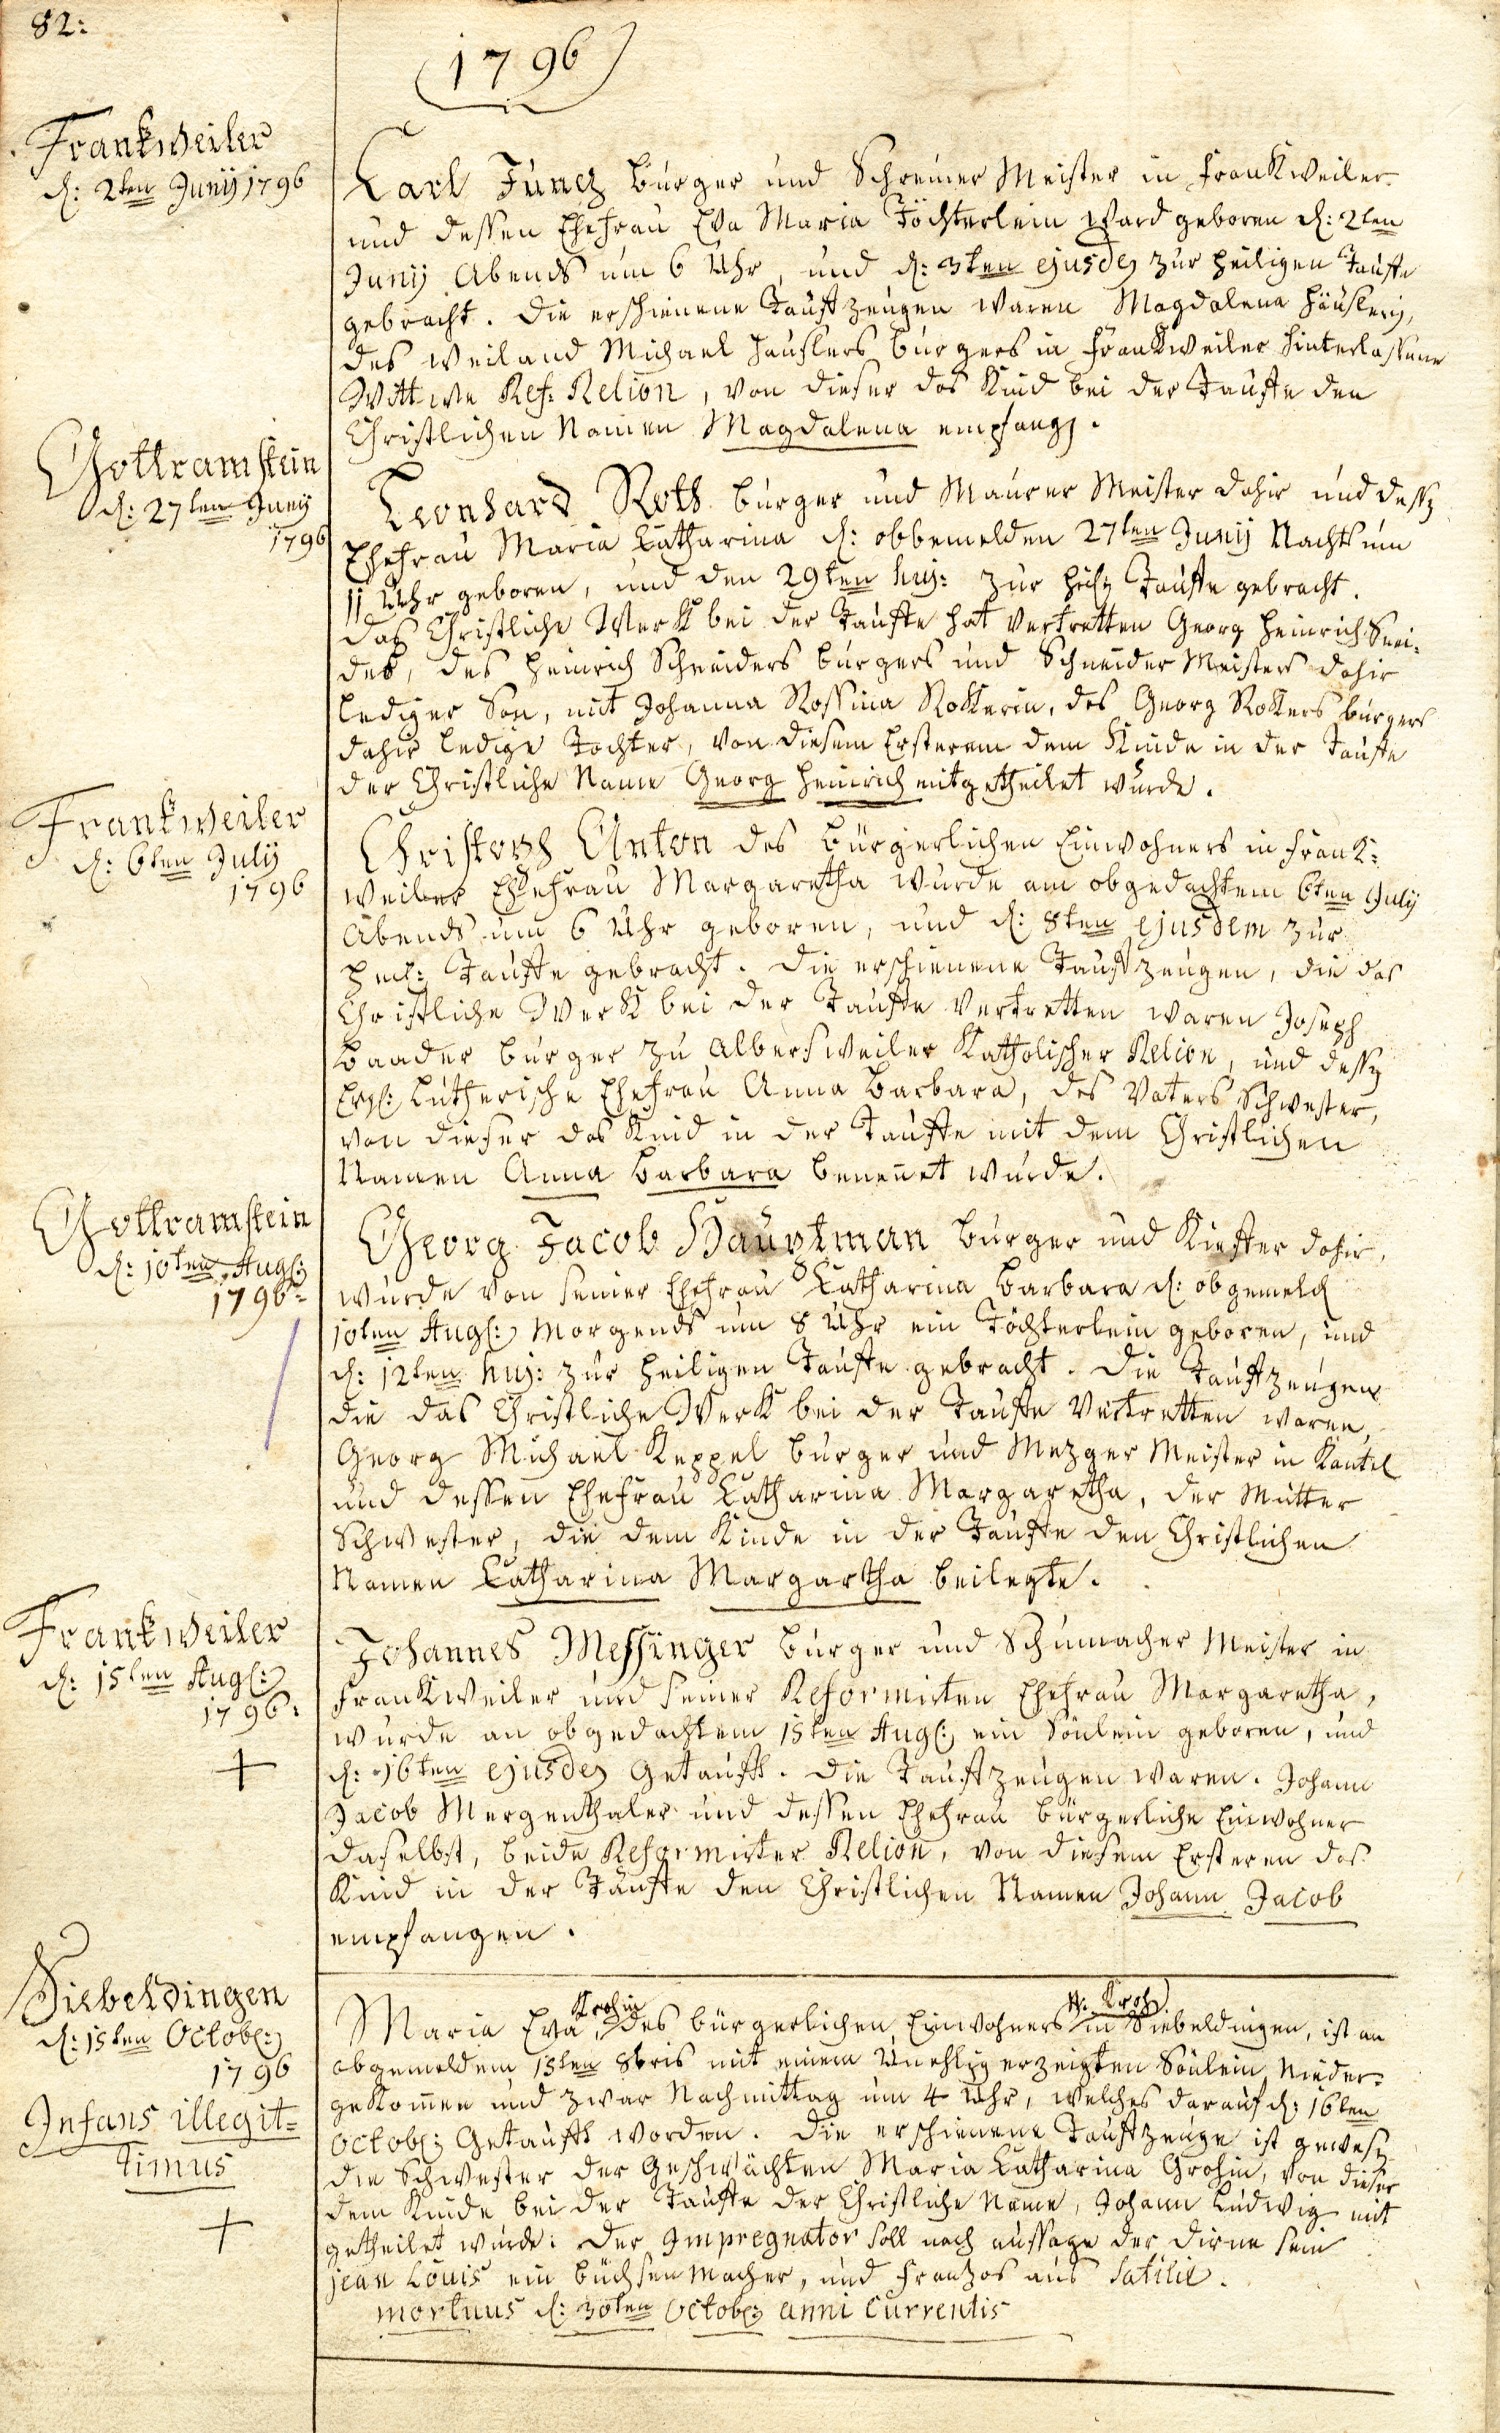 82:
(1796)
Frankweiler
d: 2ten Junij 1796
Carl Jung Burger und Schreiner Meister in Frankweiler
und dessen Ehefrau Eva Maria Töchterlein ward geboren d: 2ten
Junij Abends um 6 Uhr, und d: 3ten ejusdej zur heiligen Tauffe
gebracht. Die erschienene Tauffzeugen waren Magdalena Häuslerin,
des weiland Michael Hauslers Burgers in Frankweiler hinterlassene
Wittwe Ref: Relion, von dieser das Kind bei der Tauffe den
Christlichen Namen Magdalena empfang.
Gottramstein
d: 27ten Junij
1796
Leonhard Roth Burger und Maurer Meister dahir und dess
Ehefrau Maria Catharina d: obbemelden 27ten Junij Nachts um
11 Uhr geboren, und den 29ten huj: zur heil Tauffe gebracht.
Das Christliche Werk bei der Tauffe hat vertretten Georg Heinrich Snei-
der, des Heinrich Schneiders Burgers und Schneider Meisters dahir
lediger Son, mit Johanna Rossina Rokerin, des Georg Rokers burgers
dahir ledige Tochter, von diesem Ersterem dem Kinde in der Tauffe
der Christliche Name Georg Heinrich mitgetheilet wurde.
Frankweiler
d: 6ten July
1796
Christoph Anton des Bürgerlichen Einwohners in Frank:
weiler Ehefrau Margaretha wurde am obgedachtem 6ten July
Abends um 6 Uhr geboren, und d: 8ten ejusdem zur
heil: Tauffe gebracht. Die erschienene Tauffzeugen, die das
Christliche Werk bei der Tauffe vertretten waren Joseph
Baader Burger zu Albersweiler Katholischer Relion, und dess
Lutherische Ehefrau Anna Barbara, des Vaters Schwester,
von dieser das Kind in der Tauffe mit dem Christlichen
Namen Anna Barbara benennet wurde.
Gottramstein
d: 10ten Aug:
1796
Georg Jacob Hauptman Burger und Kieffer dahir,
wurde von seiner Ehefrau Catharina Barbara d: obgemeld
10ten Aug: Morgends um 8 Uhr ein Töchterlein geboren, und
d: 12ten huj: zur heiligen Tauffe gebracht. Die Tauffzeugen
die das Christliche Werk bei der Tauffe Vertretten waren,
Georg Michael Keppel Burger und Mezger Meister in Kantel
und dessen Ehefrau Catharina Margaretha, der Mutter
Schwester, die dem Kinde in der Tauffe den Christlichen
Namen Catharina Margartha beilegte.
Frankweiler
d: 15ten Aug:
1796:
Johannes Messinger Burger und Schumacher Meister in
Frankweiler und seiner Reformirten Ehefrau Margaretha,
wurde an obgedachtem 15ten Aug: ein Sönlein geboren, und
d: 16ten ejusdej Getaufft. Die Tauffzeugen waren. Johann
Jacob Mergenthaler und dessen Ehefrau bürgerliche Einwohner
daselbst, beide Reformirter Relion, von diesem Ersteren das
Kind in der Tauffe den Christlichen Namen Johann Jacob
empfangen.
Siebeldingen
d: 15ten Octob:
1796
Infans illegit-
timus
Krohin
Kroh
Maria Eva, des bürgerlichen Einwohners in Siebeldingen, ist an
obgemeldem 15ten 8bris mit einem Unehlig erzeigten Sönlein Nieder-
gekommen und zwar Nachmittag um 4 Uhr, welches darauf d: 16ten
Octob: Getaufft worden. Die erschienene Tauffzeuge ist gewes
die Schwester der Geschwächten Maria Catharina Grohin, von dieser
dem Kinde bei der Tauffe der Christliche Name, Johann Ludwig mit
getheilet wurde: Der Impregnator soll nach aussage der Dirne sein
jean Louis ein büchsenmacher, und Franzos aus Satilie.
mortuus d: 30ten Octob: anni Currentis